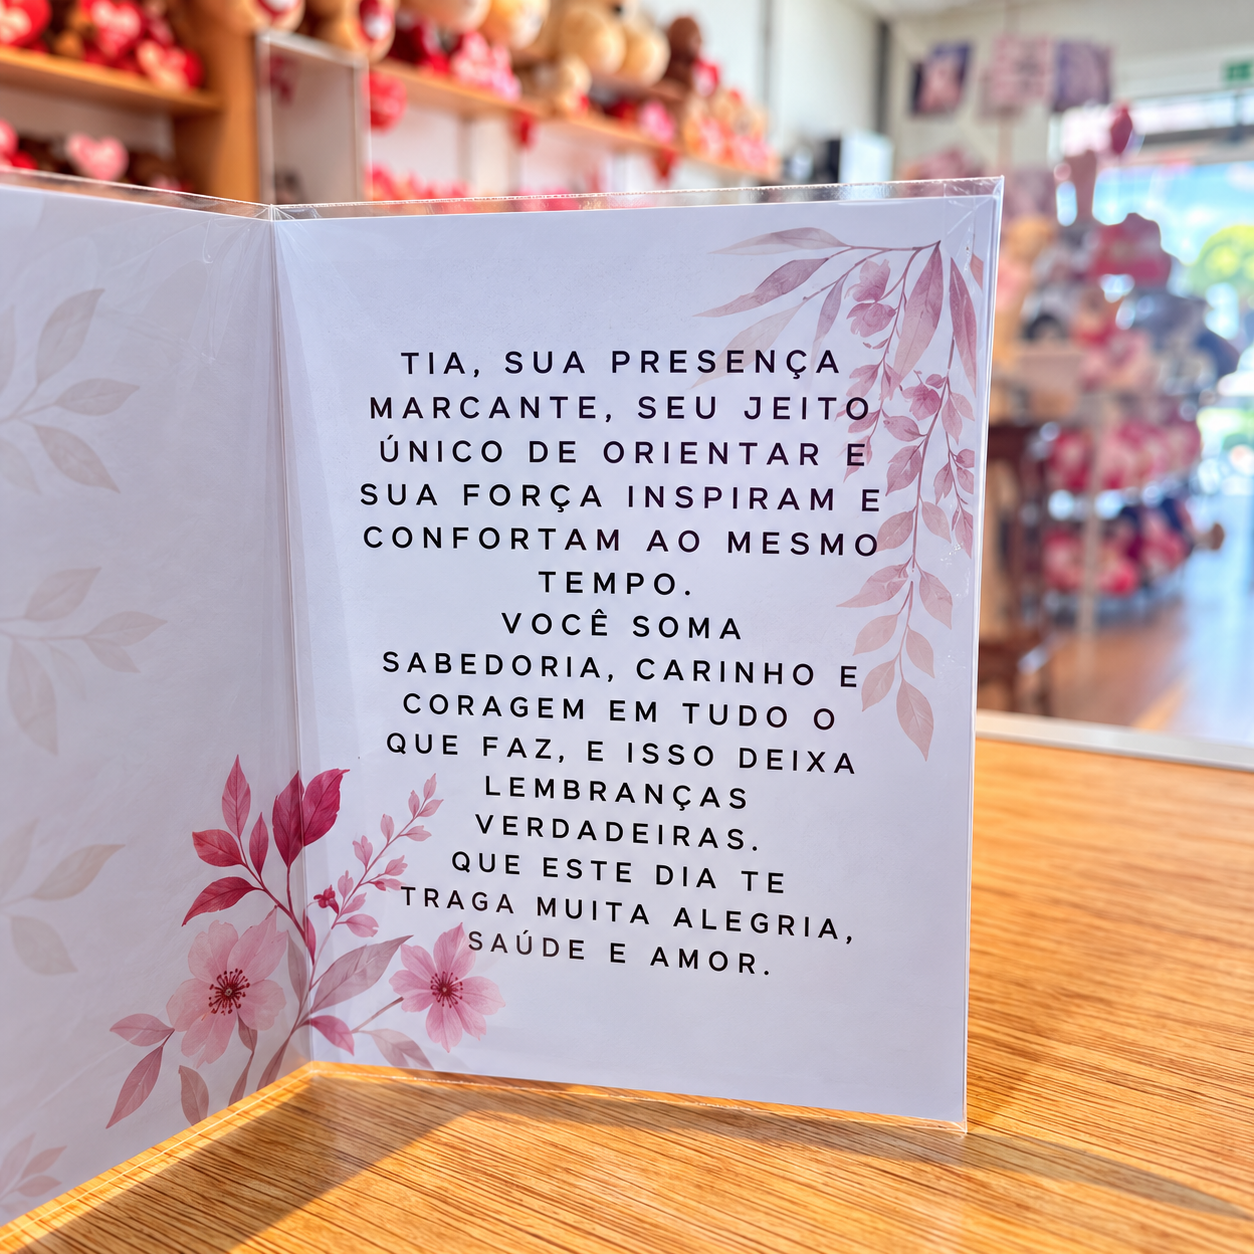 TIA, SUA PRESENÇA
MARCANTE, SEU JEITO
ÚNICO DE ORIENTAR E
SUA FORÇA INSPIRAM E
CONFORTAM AO MESMO
TEMPO.
VOCÊ SOMA
SABEDORIA, CARINHO E
CORAGEM EM TUDO O
QUE FAZ, E ISSO DEIXA
LEMBRANÇAS
VERDADEIRAS.
QUE ESTE DIA TE
TRAGA MUITA ALEGRIA,
SAÚDE E AMOR.